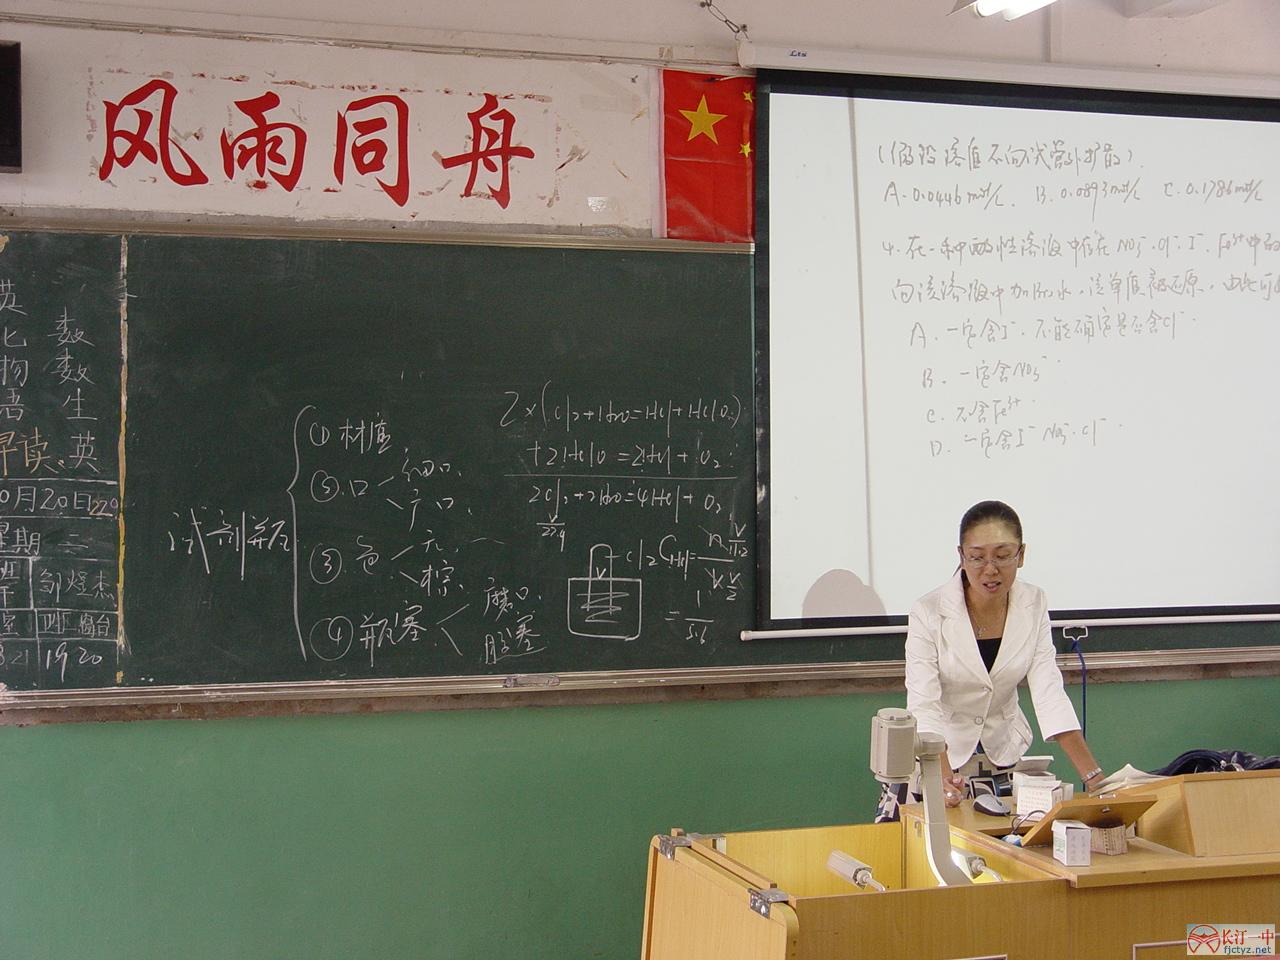 风雨同舟
英 数
化 数
物 数
语 生
早读 英
10月20日
星期二
邹煜杰
19 20
试剂瓶
①材质
②口 细口
广口
③色 无
棕
④瓶塞 磨口
胶塞
2×(Cl2+H2O=HCl+HClO)
+2HClO=2HCl+O2
2Cl2+2H2O=4HCl+O2
V
22.4
Cl2 CHCl= n V/11.2
V V/22.4
= 1
5.6
(假设溶质不向试管外扩散).
A.0.0446mol/L. B.0.0893mol/L C.0.1786mol/L
4.在一种酸性溶液中存在NO3-.Cl-.I-.Fe3+中的
向该溶液中加溴水,该单质被还原,由此可
A.一定含I-.不能确定是否含Cl-.
B.一定含NO3-.
C.不含Fe3+.
D.一定含I- NO3-.Cl-.
长汀一中
fjctyz.net